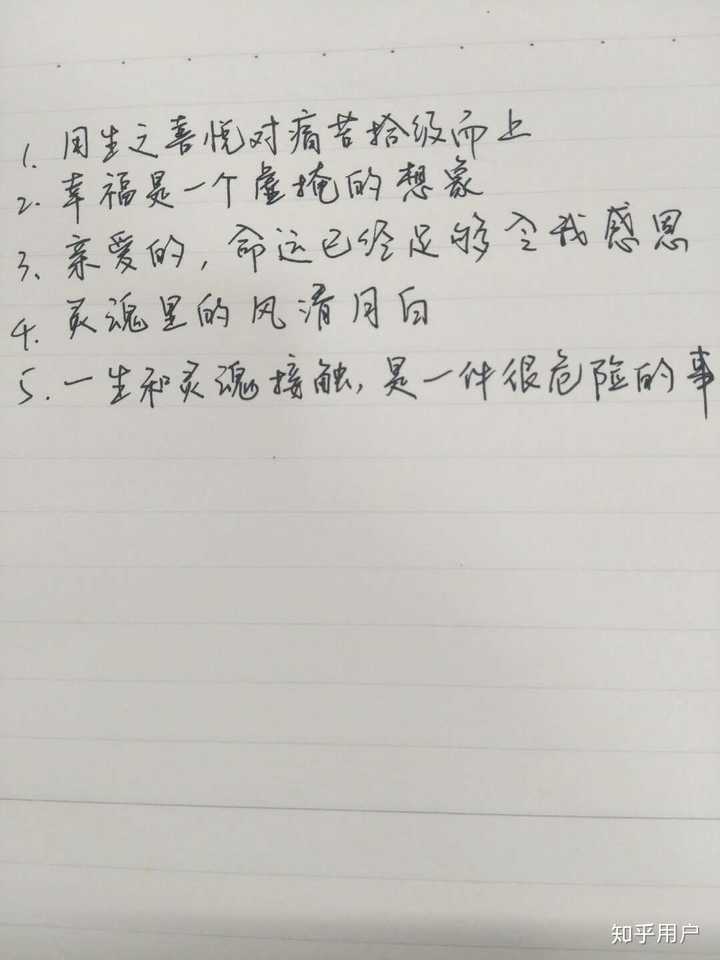 1. 用生之喜悦对痛苦拾级而上
2. 幸福是一个虚掩的想象
3. 亲爱的,命运已经足够令我感恩
4. 灵魂里的风清月白
5. 一生和灵魂接触,是一件很危险的事
知乎用户